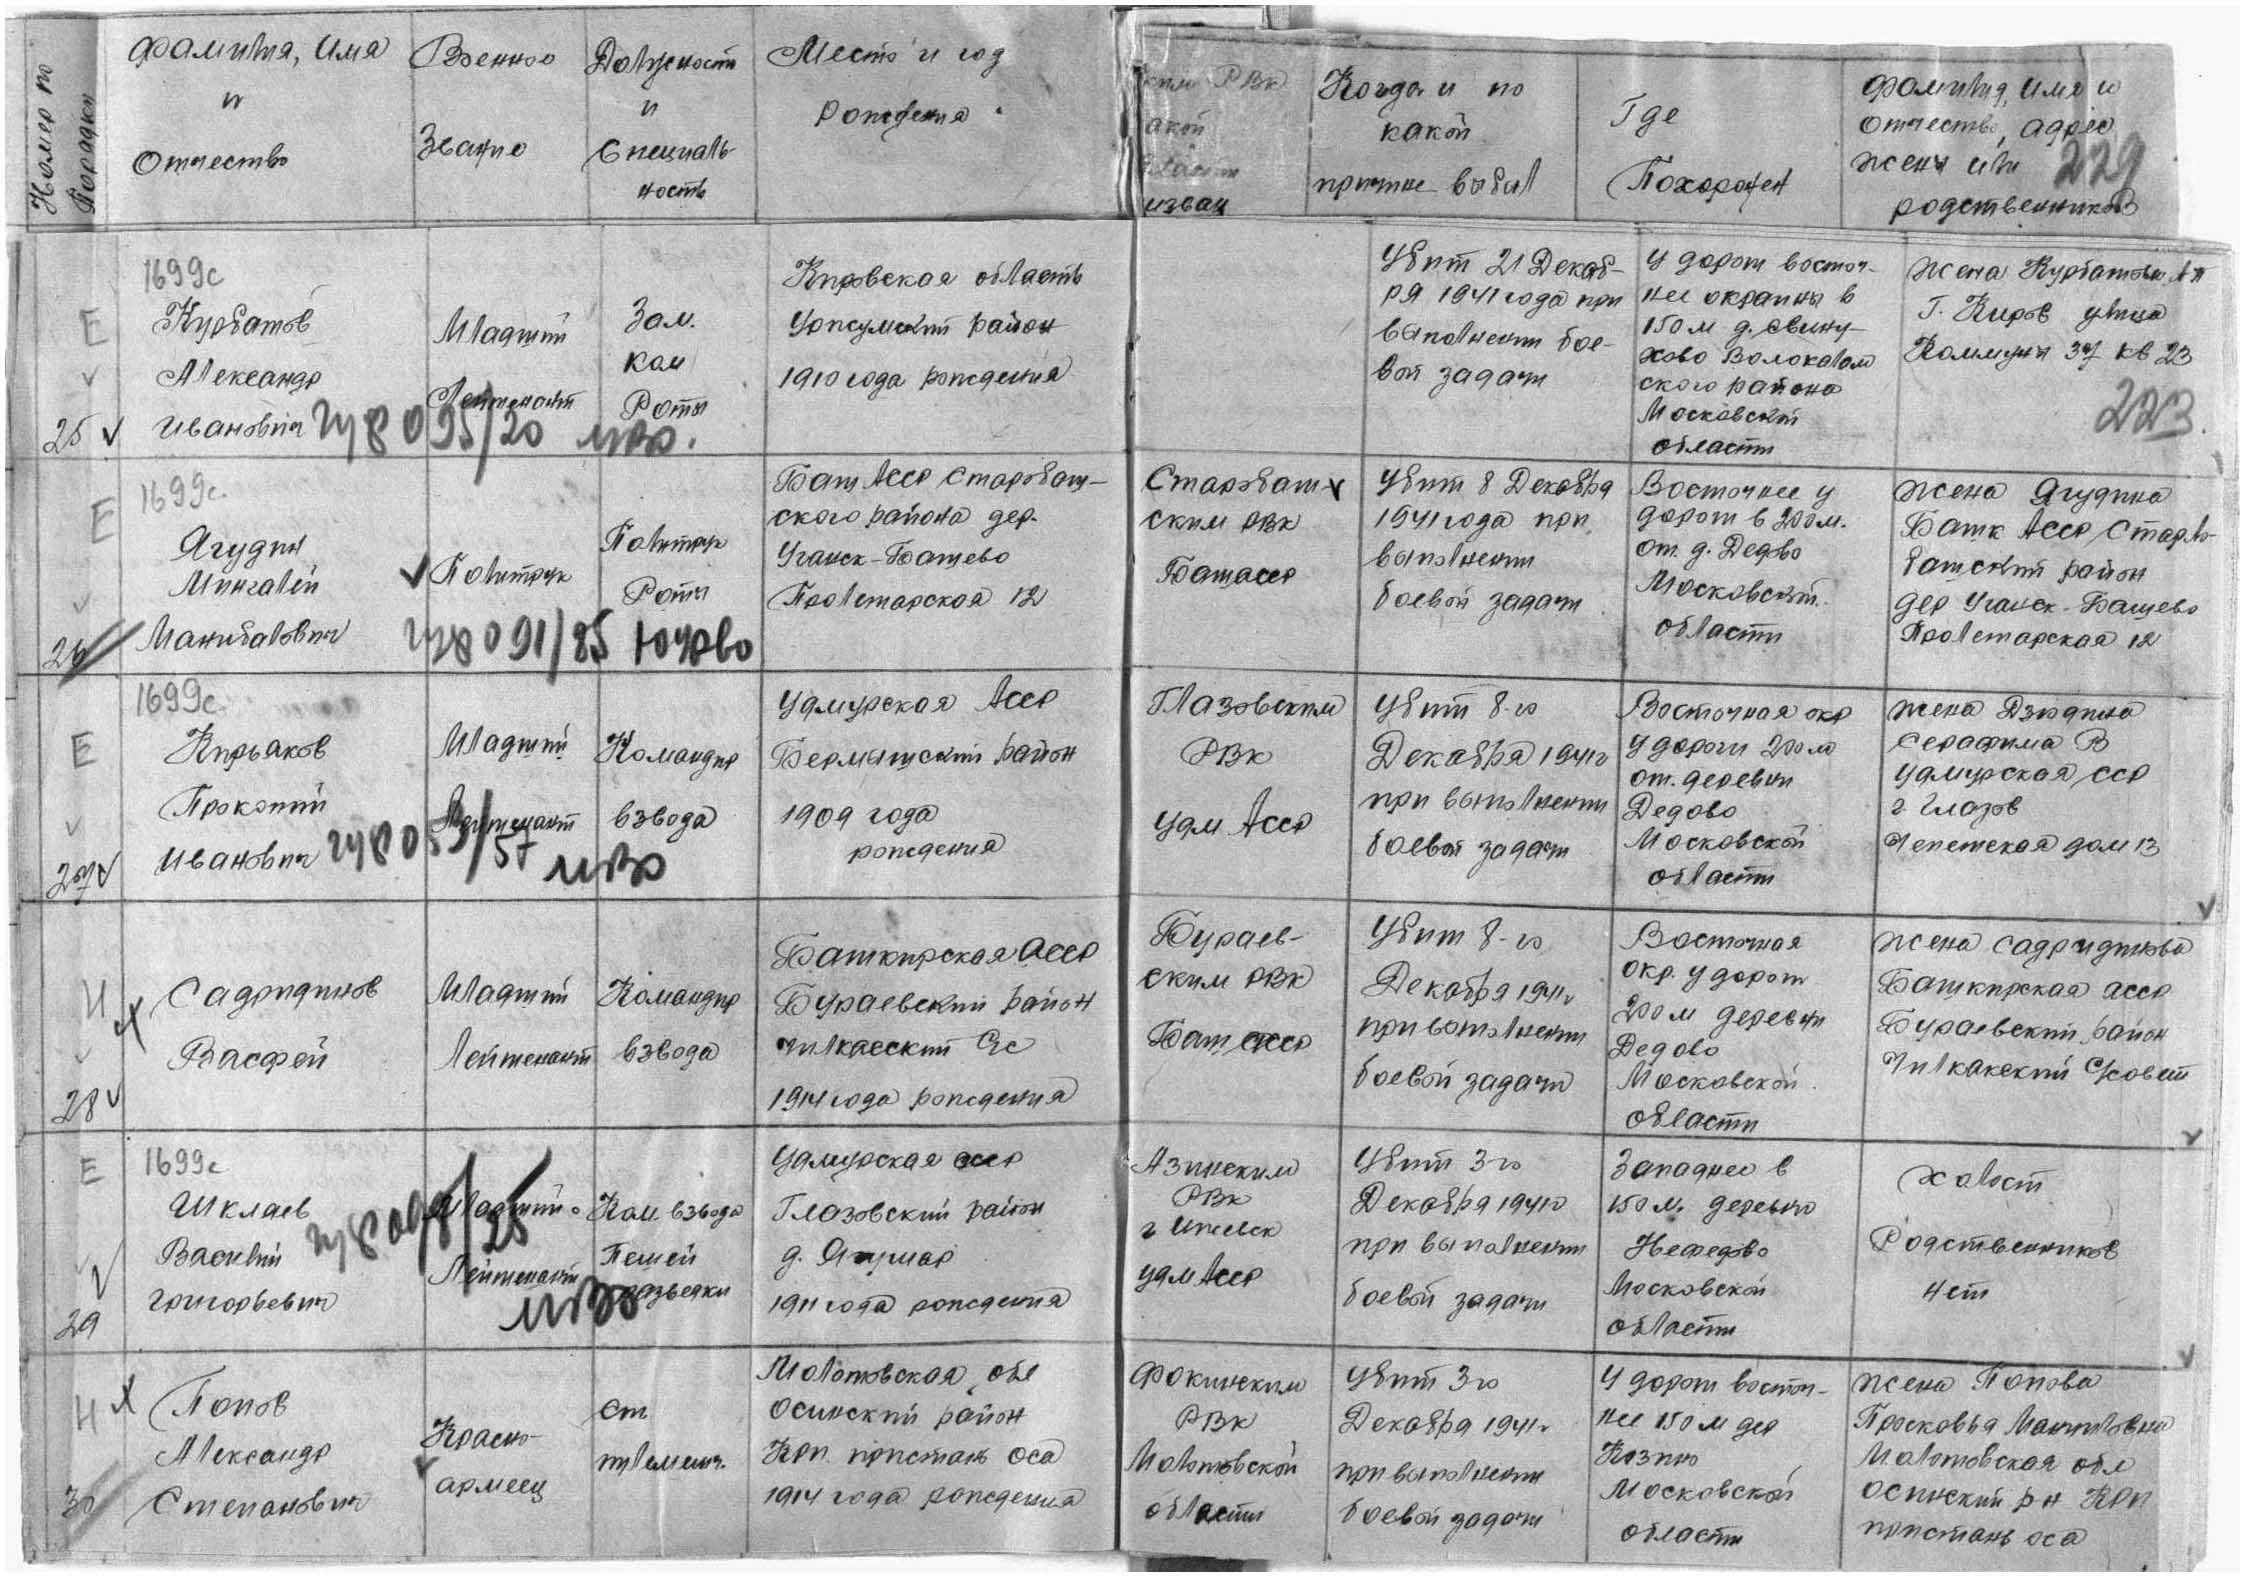 Номер по
Порядку
Фамилия, Имя
и
Отчество
Военное
Звание
Должность
и
Специаль-
ность
Место и год
рождения
ким РВк
акой
области
изван
Когда и по
какой
причине выбыл
Где
Похоронен
Фамилия, Имя и
отчество, адрес
жены или
родственников
229
25
Е
1699с
Курбатов
Александр
Иванович
Младший
Лейтенант
Зам.
Ком
Роты
Кировская область
Уржумский район
1910 года рождения
Убит 21 Декаб-
ря 1941 года при
выполнении бое-
вой задачи
У дороги восточ-
нее окраины в
150 м д. Свину-
хово Волоколам
ского района
Московской
области
Жена Курбатова А П
Г. Киров улица
Коммуны 37 кв 23
223
26
Е
1699с.
Ягудин
Мингалей
Манибалович
Политрук
Политрук
Роты
Баш Асср Старобаш-
ского района дер.
Уганск-Башево
Пролетарская 12
Старобаш-
ским РВк
Башасср
Убит 8 Декабря
1941 года при
выполнении
боевой задачи
Восточнее у
дороги в 200 м.
от д. Дедово
Московской
области
Жена Ягудина
Башк Асср Старо-
башский район
дер Уганск-Башево
Пролетарская 12
27
Е
1699с.
Кирьаков
Прокопий
Иванович
Младший
Лейтенант
Командир
взвода
Удмурская Асср
Бермышский район
1909 года
рождения
Глазовским
РВк
Удм Асср
Убит 8-го
Декабря 1941 г
при выполнении
боевой задачи
Восточная окр
у дороги 200 м
от деревни
Дедово
Московской
области
Жена Дзюдина
Серафима В
Удмурская сср
г Глазов
Чепетская дом 13
28
И
Садридинов
Васфей
Младший
Лейтенант
Командир
взвода
Башкирская Асср
Бураевский район
Чилкаеский с/с
1914 года рождения
Бураев-
ским РВк
Баш Асср
Убит 8-го
Декабря 1941 г
при выполнении
боевой задачи
Восточная
окр. у дороги
200 м деревни
Дедово
Московской
области
Жена Садридинова
Башкирская асср
Бураевский район
Чилкакский С/совет
29
Е
1699с
Шклаев
Василий
Григорьевич
Младший
Лейтенант
Ком. взвода
Пешей
разведки
Удмурская асср
Глазовский район
д. Якшар
1911 года рождения
Азинским
РВк
г Ижевск
Удм Асср
Убит 3-го
Декабря 1941 г
при выполнении
боевой задачи
Западнее в
150 м. деревни
Нефедово
Московской
области
Холост
Родственников
нет
30
Н
Попов
Александр
Степанович
Красно-
армеец
Ст.
телемех.
Молотовская обл
Осинский район
Крп. пристань Оса
1914 года рождения
Фокинским
РВк
Молотовской
области
Убит 3го
Декабря 1941 г
при выполнении
боевой задачи
У дороги восточ-
нее 150 м дер
Козино
Московской
области
Жена Попова
Просковья
Молотовская обл
Осинский р н КРП
пристань оса